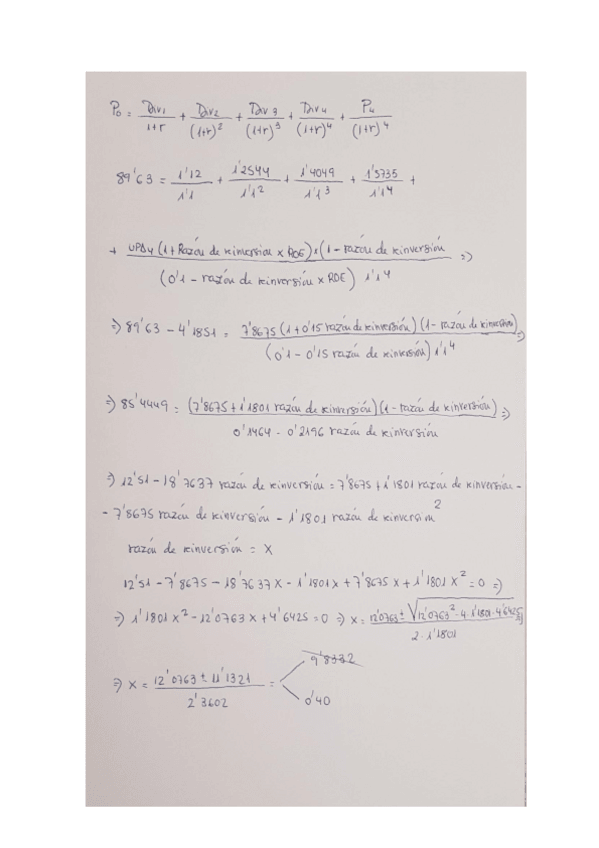 P₀ = Div₁/(1+r) + Div₂/(1+r)² + Div₃/(1+r)³ + Div₄/(1+r)⁴ + P₄/(1+r)⁴
89'63 = 1'12/1'1 + 1'2544/1'1² + 1'4049/1'1³ + 1'5735/1'1⁴ +
+ UPA₄ (1 + Razón de reinversión x ROE) x (1 - razón de reinversión)/((0'1 - razón de reinversión x ROE) 1'1⁴) =>
=> 89'63 - 4'1851 = 7'8675 (1 + 0'15 razón de reinversión) (1 - razón de reinversión)/((0'1 - 0'15 razón de reinversión) 1'1⁴) =>
=> 85'4449 = (7'8675 + 1'1801 razón de reinversión) (1 - razón de reinversión)/(0'1464 - 0'2196 razón de reinversión) =>
=> 12'51 - 18'7637 razón de reinversión = 7'8675 + 1'1801 razón de reinversión -
- 7'8675 razón de reinversión - 1'1801 razón de reinversión²
razón de reinversión = X
12'51 - 7'8675 - 18'7637X - 1'1801X + 7'8675X + 1'1801X² = 0 =>
=> 1'1801X² - 12'0763X + 4'6425 = 0 => X = (12'0763 ± √(12'0763² - 4·1'1801·4'6425))/(2·1'1801) =>
=> X = (12'0763 ± 11'1321)/2'3602 =
9'8332
0'40